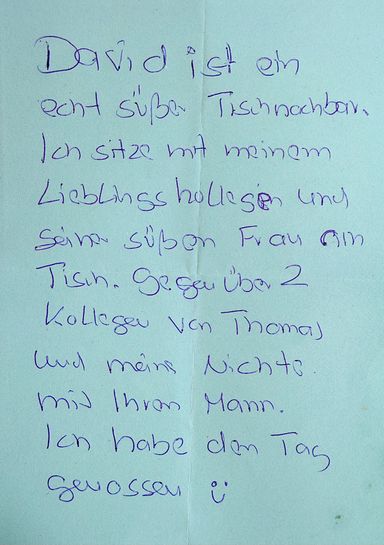 David ist ein
echt süßer Tischnachbar.
Ich sitze mit meinem
Lieblingskollegen und
seiner süßen Frau am
Tisch. Gegenüber 2
Kollegen von Thomas
und meine Nichte
mit Ihren Mann.
Ich habe den Tag
genossen ü